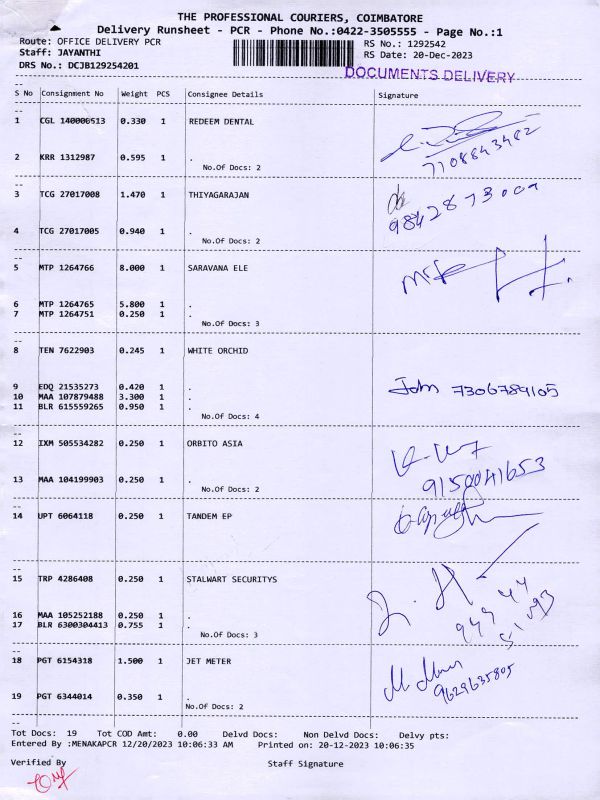 THE PROFESSIONAL COURIERS, COIMBATORE
Delivery Runsheet - PCR - Phone No.:0422-3505555 - Page No.:1
Route: OFFICE DELIVERY PCR
RS No.: 1292542
Staff: JAYANTHI
RS Date: 20-Dec-2023
DRS No.: DCJB129254201
DOCUMENTS DELIVERY
S No Consignment No Weight PCS Consignee Details Signature
1 CGL 140000513 0.330 1 REDEEM DENTAL
7708843482
2 KRR 1312987 0.595 1 .
No.Of Docs: 2
3 TCG 27017008 1.470 1 THIYAGARAJAN
9842873009
4 TCG 27017005 0.940 1 .
No.Of Docs: 2
5 MTP 1264766 8.000 1 SARAVANA ELE
6 MTP 1264765 5.800 1 .
7 MTP 1264751 0.250 1 .
No.Of Docs: 3
8 TEN 7622903 0.245 1 WHITE ORCHID
9 EDQ 21535273 0.420 1 .
John 7306789105
10 MAA 107879488 3.300 1 .
11 BLR 615559265 0.950 1 .
No.Of Docs: 4
12 IXM 505534282 0.250 1 ORBITO ASIA
13 MAA 104199903 0.250 1 .
9150041653
No.Of Docs: 2
14 UPT 6064118 0.250 1 TANDEM EP
15 TRP 4286408 0.250 1 STALWART SECURITYS
16 MAA 105252188 0.250 1 .
17 BLR 6300304413 0.755 1 .
No.Of Docs: 3
18 PGT 6154318 1.500 1 JET METER
9629635805
19 PGT 6344014 0.350 1 .
No.Of Docs: 2
Tot Docs: 19 Tot COD Amt: 0.00 Delvd Docs: Non Delvd Docs: Delvy pts:
Entered By :MENAKAPCR 12/20/2023 10:06:33 AM Printed on: 20-12-2023 10:06:35
Verified By Staff Signature